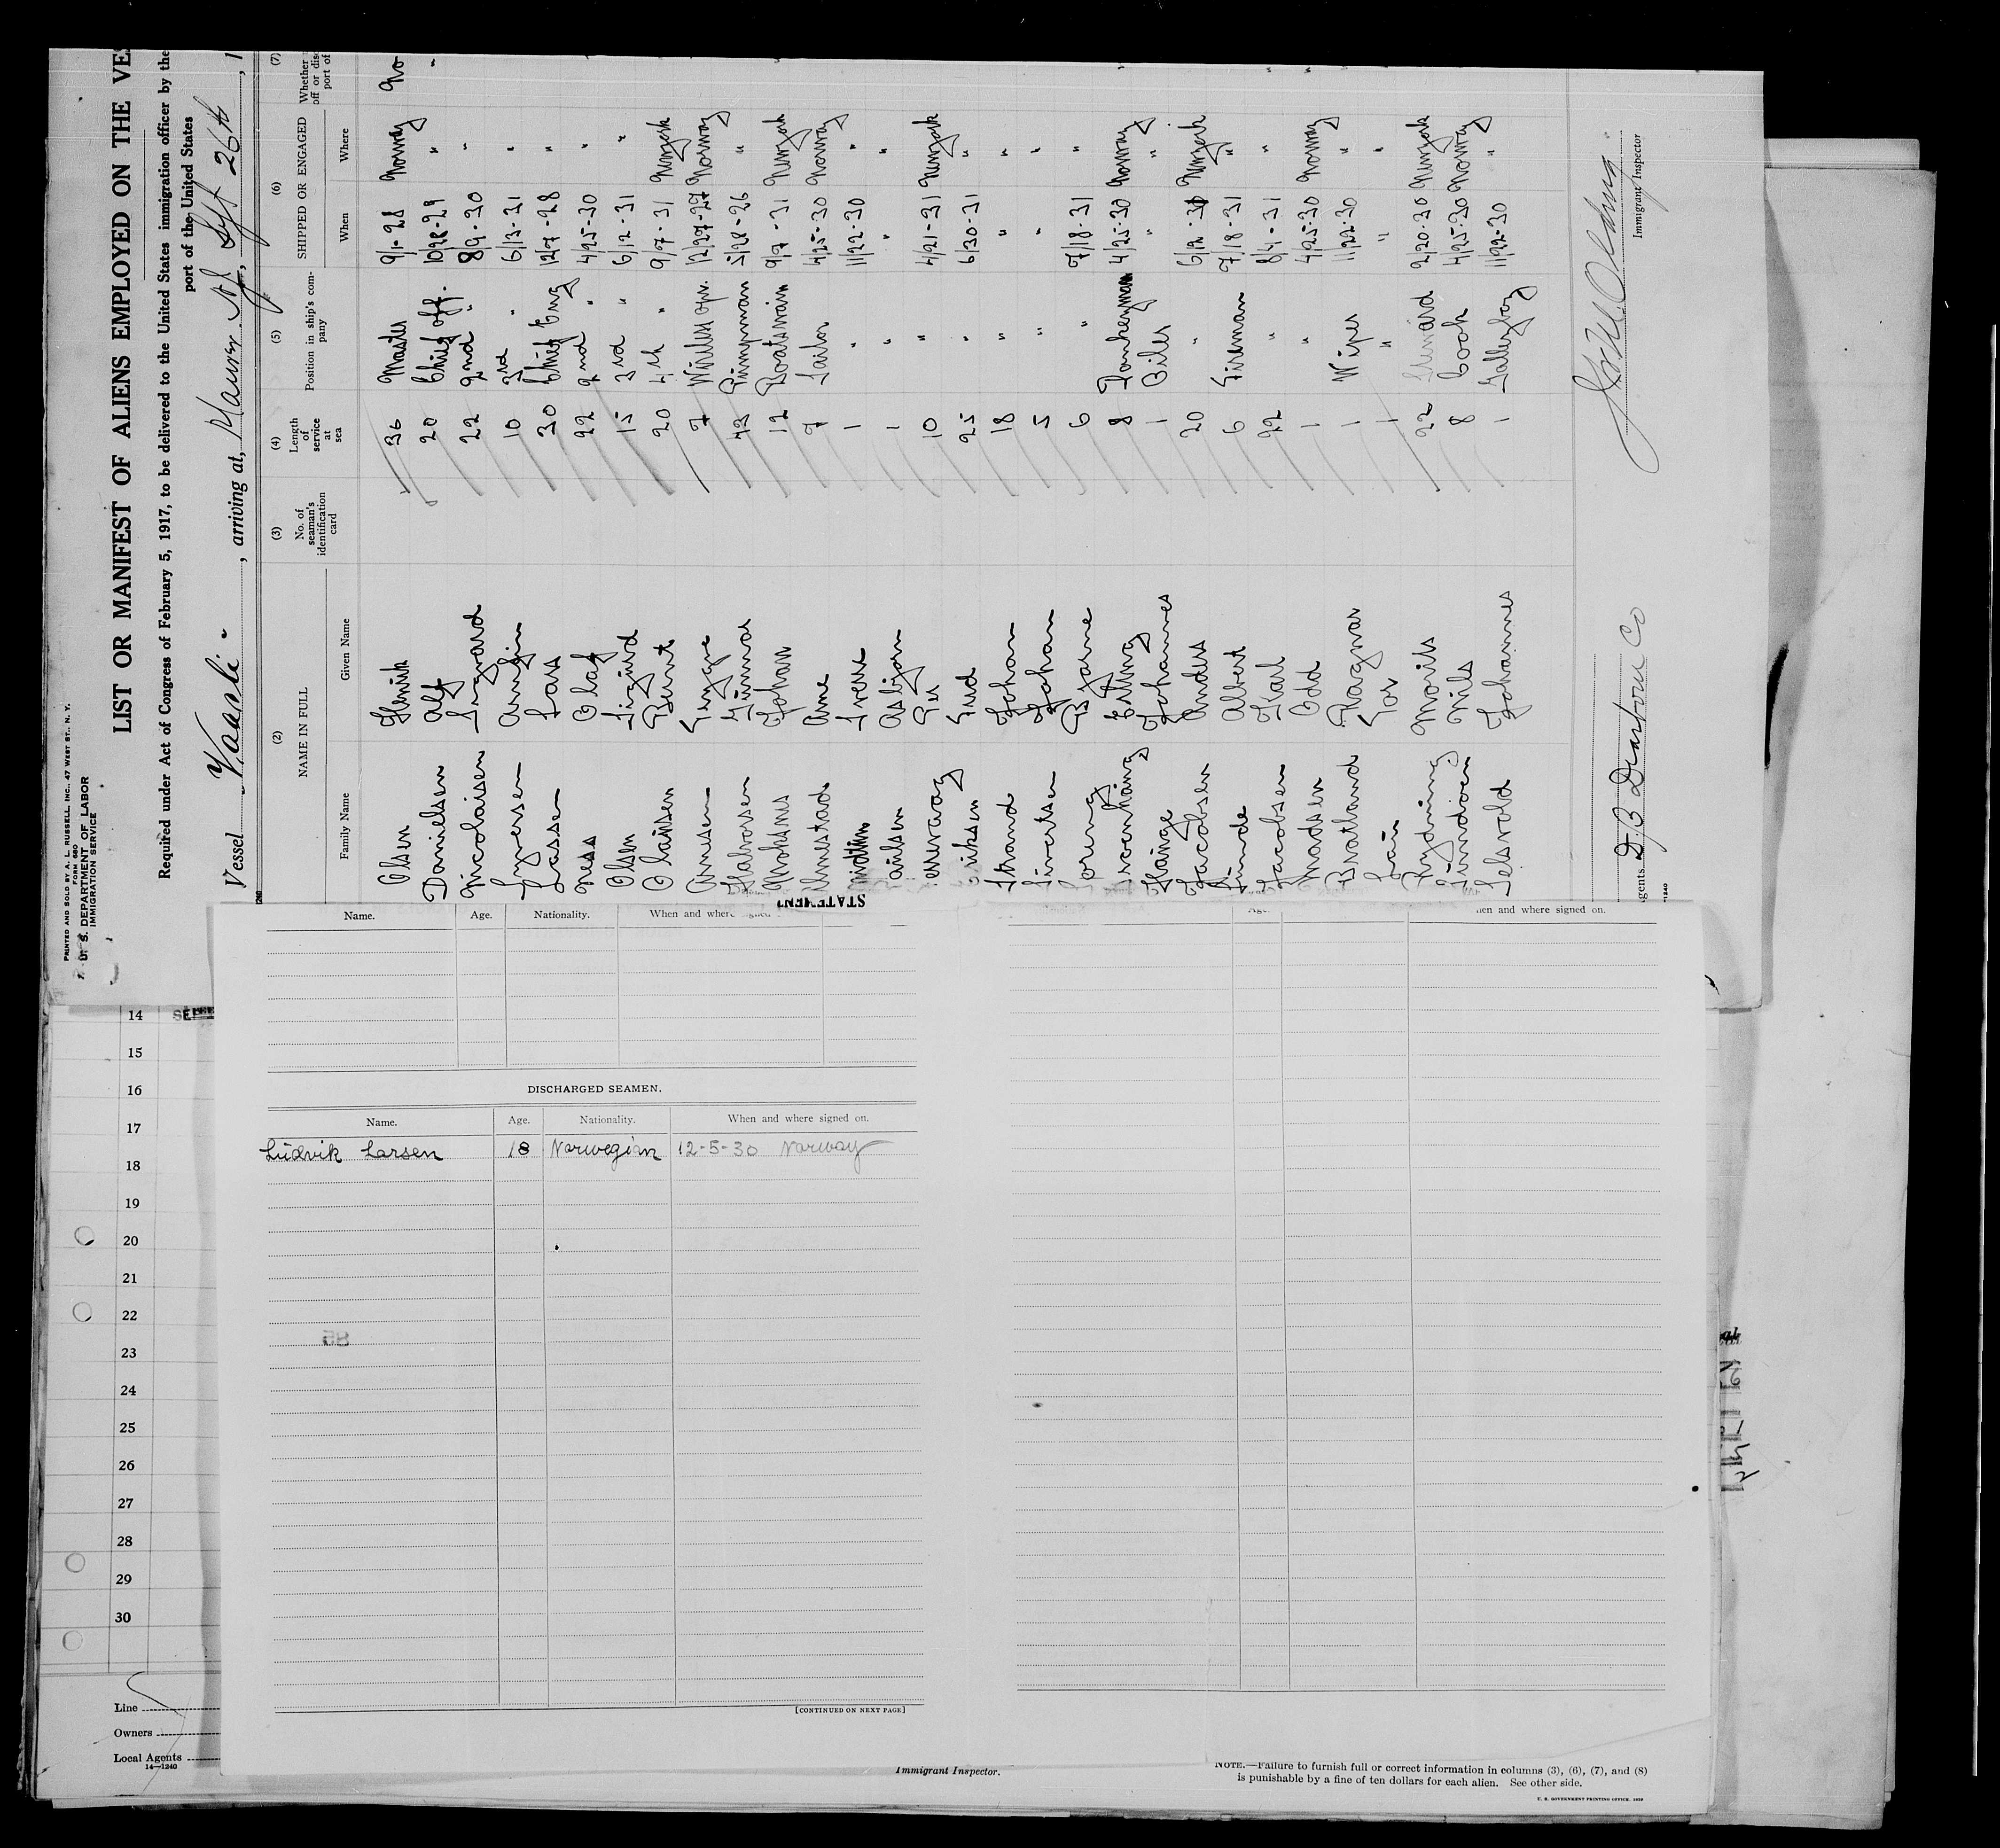 PRINTED AND SOLD BY A. L. RUSSELL, INC., 47 WEST ST., N. Y.
FORM 680
U. S. DEPARTMENT OF LABOR
IMMIGRATION SERVICE
LIST OR MANIFEST OF ALIENS EMPLOYED ON THE VES
Required under Act of Congress of February 5, 1917, to be delivered to the United States immigration officer by the
port of the United States
Vessel Vaarli, arriving at, Maurer N.J., Sept 26th, 1
(2) (3) (4) (5) (6) (7)
NAME IN FULL No. of seaman's identification card Length of service at sea Position in ship's company SHIPPED OR ENGAGED Whether
Family Name Given Name When Where
Olsen Henrik 36 Master 9/1-28 Norway No
Danielsen Alf 20 Chief off. 10/28-29 " "
Nicolaisen Ingvard 22 2nd " 8/9-30 "
Syversen Arnljn 10 3rd " 6/13-31 "
Lassen Lars 30 Chief Eng 12/7-28 "
Ness Olaf 22 2nd " 4/25-30 "
Olsen Sigurd 15 3rd " 6/12-31 "
Olaussen Bernt 20 4th " 9/7-31 Newyork
Arnesen Trygve 7 Wireless opr. 12/27-27 Norway
Halvorsen Gunnar 43 Pumpman 5/28-26 "
Johan 12 Boatswain 9/7-31 Newyork
Arne 7 Sailor 4/25-30 Norway
Sverre 1 " 11/22-30 "
Asbjørn 1 " " "
Per 10 " 4/21-31 Newyork
Eriksen 25 " 6/30-31 "
Strand Johan 18 " " "
Sivertsen Johan 5 " " "
Bjarne 6 " 7/18-31 "
Erling 8 Donkeyman 4/25-30 Norway
Hauge Johannes 1 Oiler " "
Jacobsen Anders 20 " 6/12-31 Newyork
Albert 6 Fireman 7/18-31 "
Jacobsen Karl 22 " 8/4-31 "
Madsen Odd 1 " 4/25-30 Norway
Bratland Ragnar 1 Wiper 11/22-30 "
Tor 1 " " "
Rydning Morits 22 Steward 2/20-30 Newyork
Nils 8 Cook 4/25-30 Norway
Selsvold Johannes 1 Galleyboy 11/22-30 "
gents D.B. Dearborn Co
Immigrant Inspector
STATEMENT
Name. Age. Nationality. When and where signed
hen and where signed on.
DISCHARGED SEAMEN.
Name. Age. Nationality. When and where signed on.
Ludvik Larsen 18 Norwegian 12-5-30 Norway
[CONTINUED ON NEXT PAGE]
14
15
16
17
18
19
20
21
22
23
24
25
26
27
28
29
30
Line
Owners
Local Agents
14—1240
Immigrant Inspector.
NOTE.—Failure to furnish full or correct information in columns (3), (6), (7), and (8)
is punishable by a fine of ten dollars for each alien. See other side.
U. S. GOVERNMENT PRINTING OFFICE.